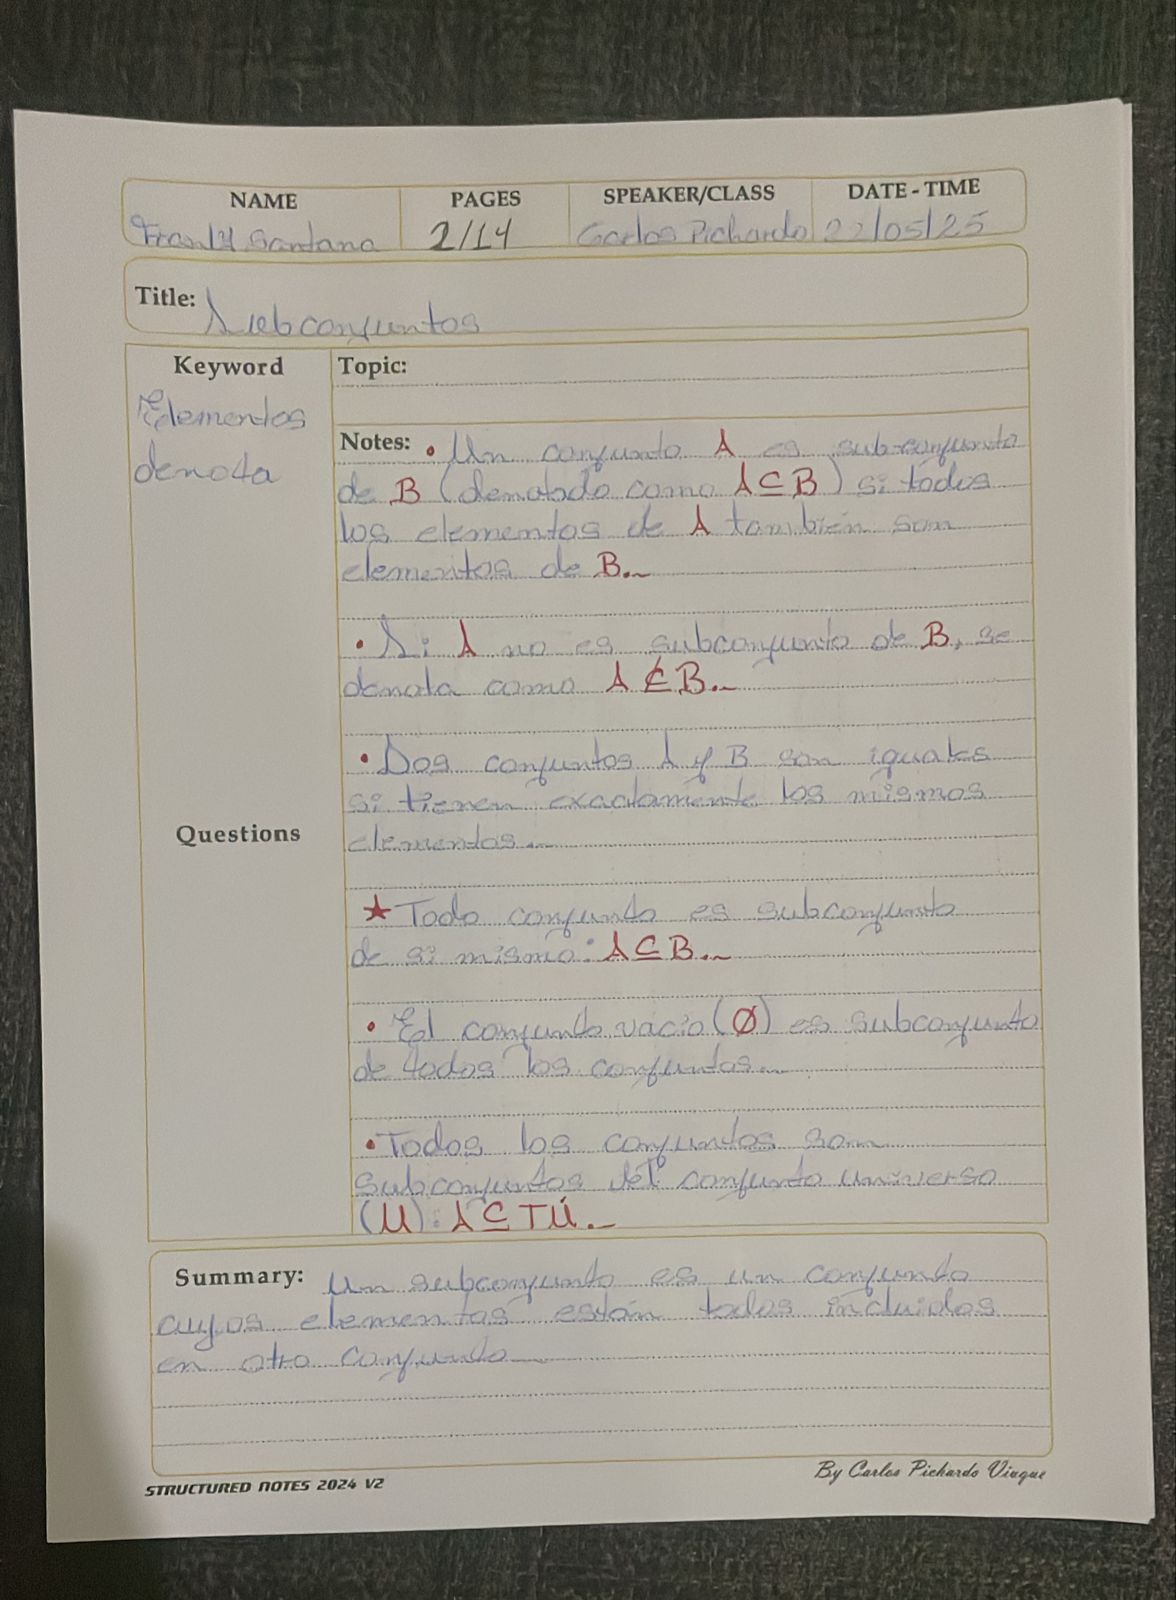 NAME PAGES SPEAKER/CLASS DATE - TIME
Franly Santana 2/14 Carlos Pichardo 22/05/25
Title: Subconjuntos
Keyword Topic:
Elementos
denota
Notes: • Un conjunto A es subconjunto
de B (denotado como A⊆B) si todos
los elementos de A también son
elementos de B.
• Si A no es subconjunto de B, se
denota como A ⊄ B.
• Dos conjuntos A y B son iguales
si tienen exactamente los mismos
elementos.
Questions
★ Todo conjunto es subconjunto
de si mismo: A⊆B.
• El conjunto vacio (Ø) es subconjunto
de todos los conjuntos.
• Todos los conjuntos son
subconjuntos del conjunto universo
(U): A⊆TÚ.
Summary: Un subconjunto es un conjunto
cuyos elementos están todos incluidos
en otro conjunto
STRUCTURED NOTES 2024 V2 By Carlos Pichardo Viuque